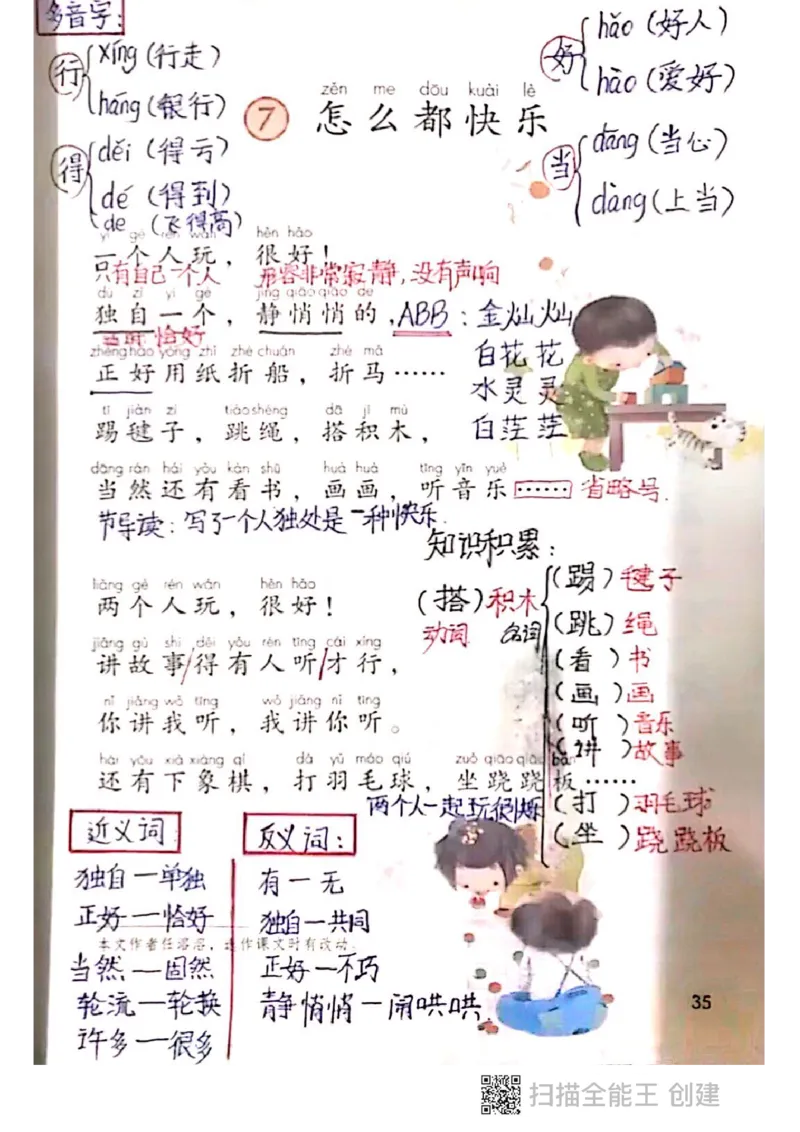 多音字:
行 xíng(行走)
háng(银行)
得 děi(得亏)
dé(得到)
de(飞得高)
好 hǎo(好人)
hào(爱好)
当 dāng(当心)
dàng(上当)
zěn me dōu kuài lè
7 怎么都快乐
yí gè rén wán hěn hǎo
一个人玩，很好！
只有自己一个人 形容非常寂静,没有声响
dú zì yí gè jìng qiāo qiāo de
独自一个，静悄悄的，ABB:金灿灿
白花花
水灵灵
白茫茫
恰好
zhèng hǎo yòng zhǐ zhé chuán zhé mǎ
正好用纸折船，折马……
tī jiàn zi tiào shéng dā jī mù
踢毽子，跳绳，搭积木，
dāng rán hái yǒu kàn shū huà huà tīng yīn yuè
当然还有看书，画画，听音乐……省略号.
节导读:写了一个人独处是一种快乐.
liǎng gè rén wán hěn hǎo
两个人玩，很好！
jiǎng gù shi děi yǒu rén tīng cái xíng
讲故事/得有人听/才行，
nǐ jiǎng wǒ tīng wǒ jiǎng nǐ tīng
你讲我听，我讲你听。
hái yǒu xià xiàng qí dǎ yǔ máo qiú zuò qiāo qiāo bǎn
还有下象棋，打羽毛球，坐跷跷板……
知识积累:
(搭)积木
动词 名词
(踢)毽子
(跳)绳
(看)书
(画)画
(听)音乐
(讲)故事
(打)羽毛球
(坐)跷跷板
近义词
独自—单独
正好—恰好
当然—固然
轮流—轮换
许多—很多
反义词:
有—无
独自—共同
正好—不巧
静悄悄—闹哄哄
本文作者任溶溶，选作课文时有改动。
35
扫描全能王 创建